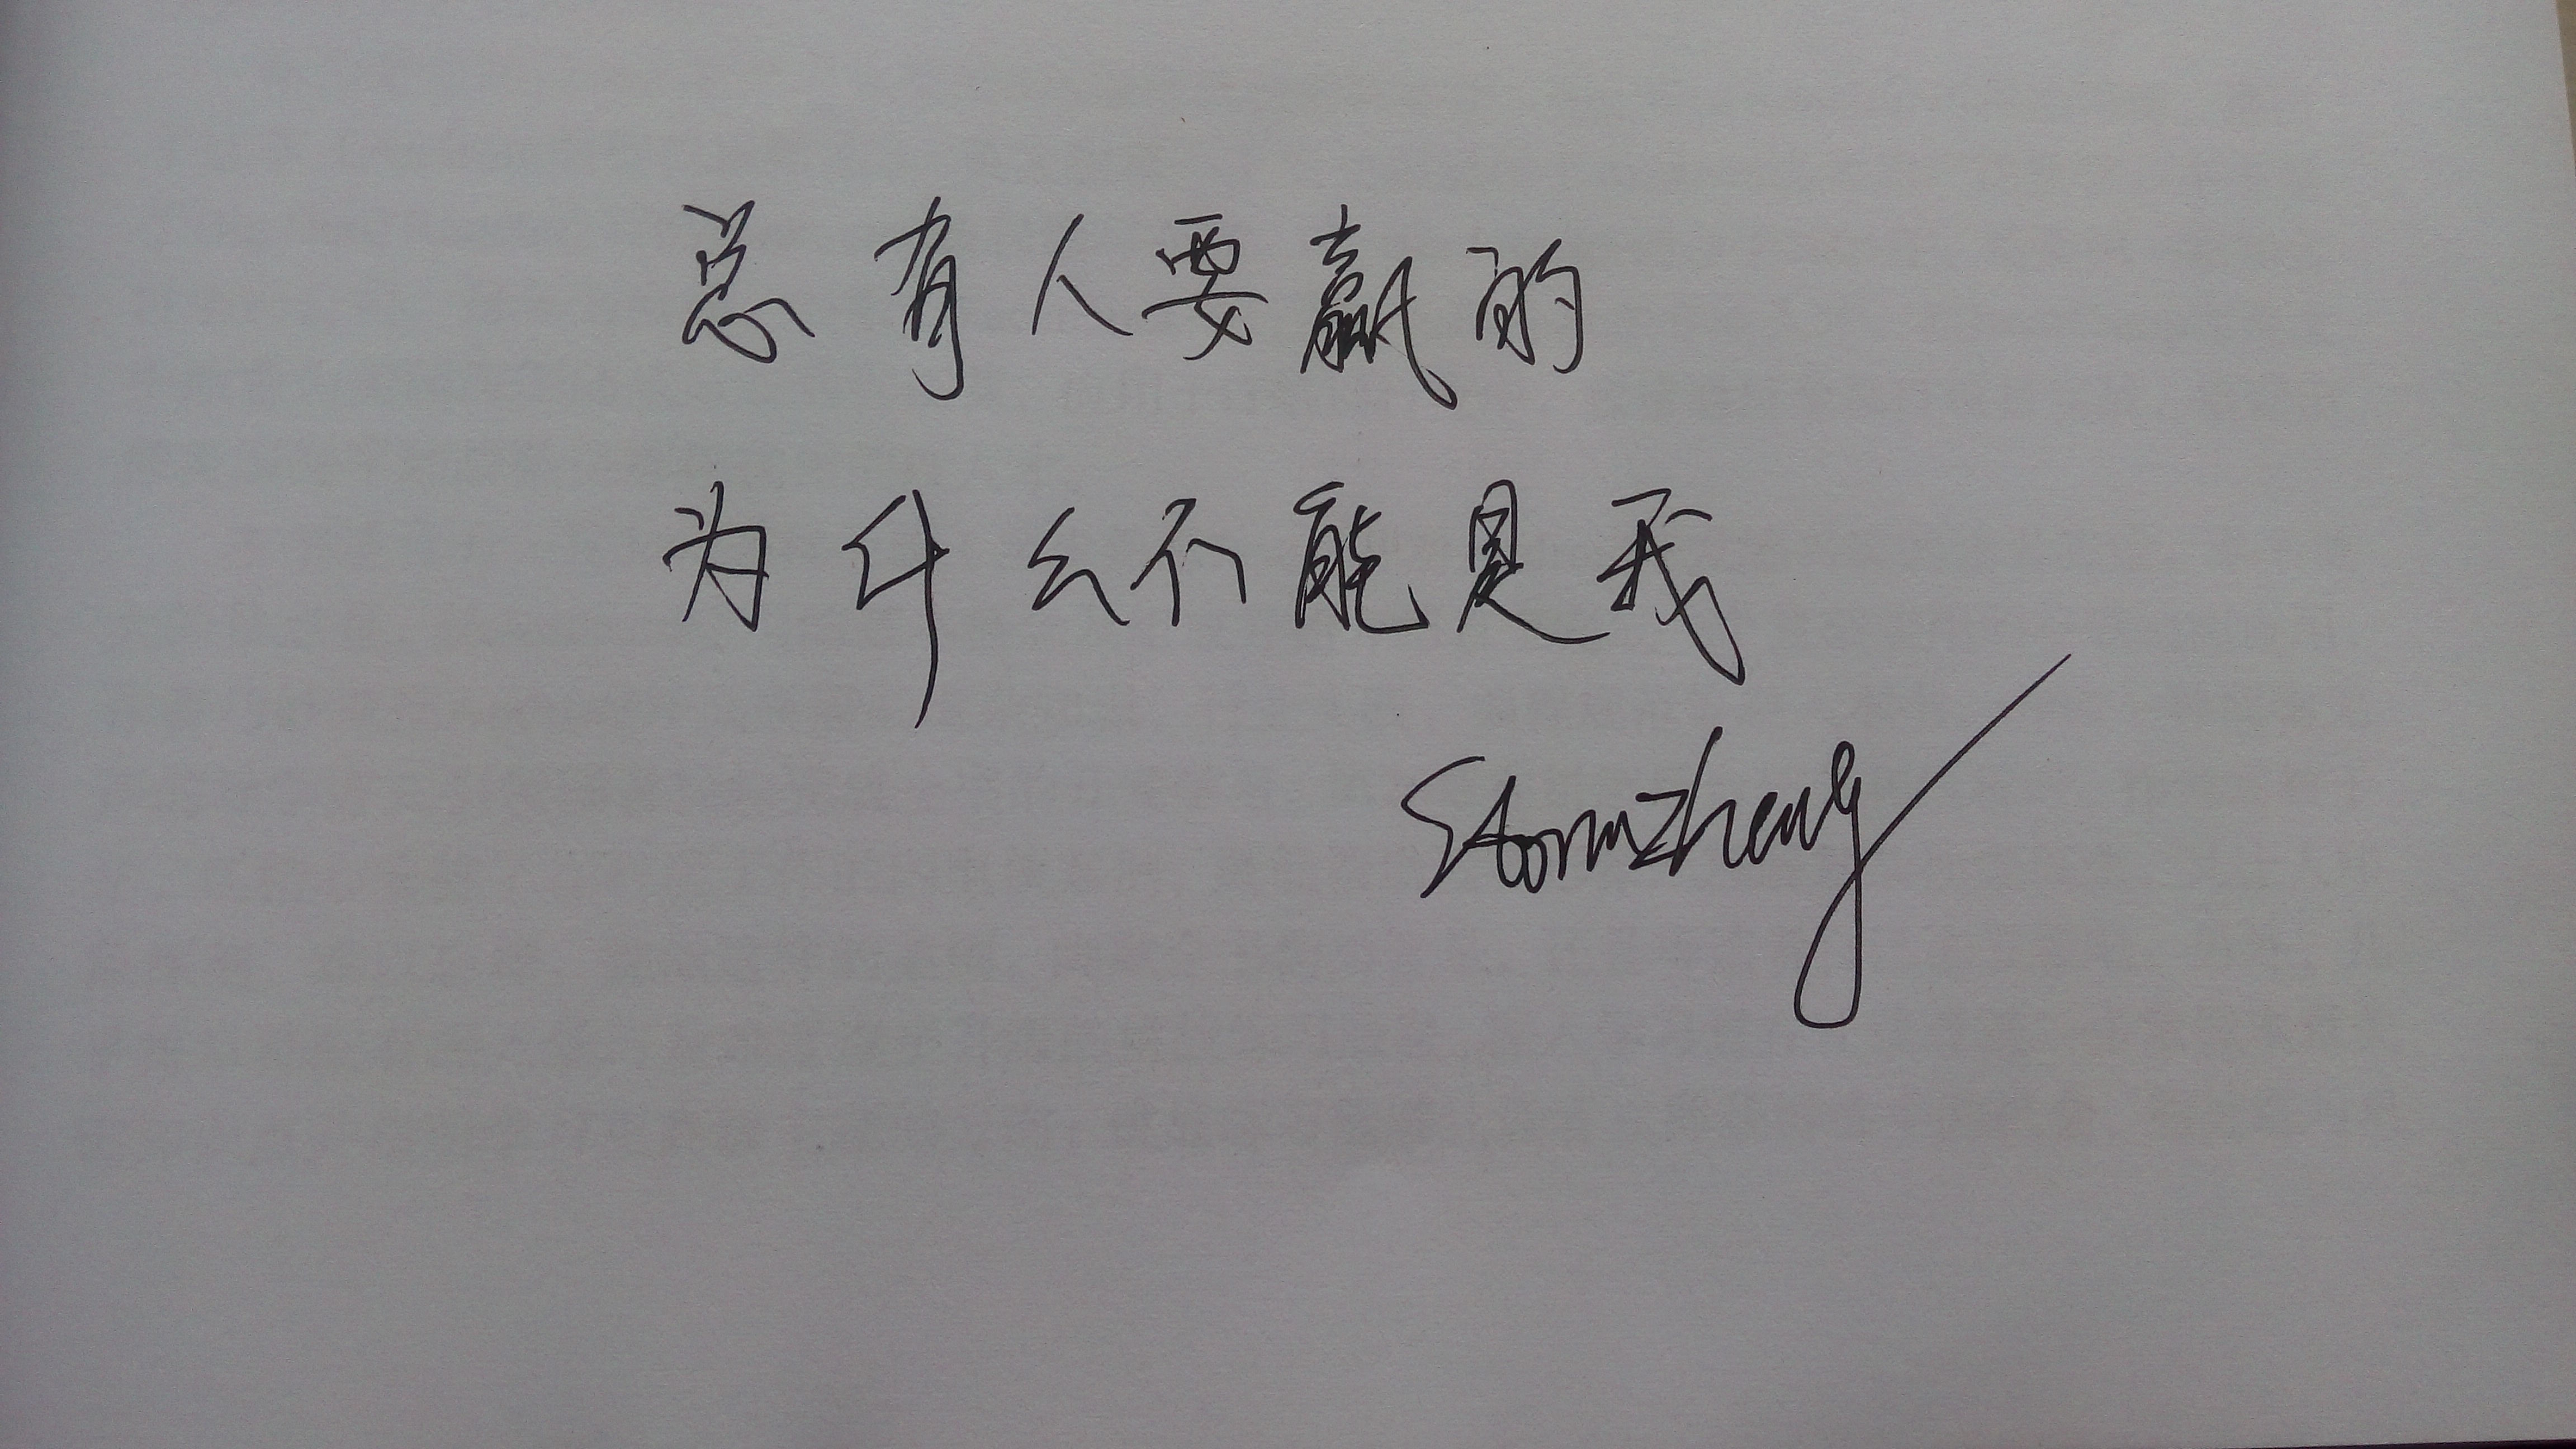 总有人要赢的
为什么不能是我
Stormzheng